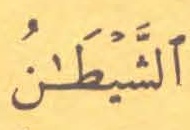 ٱلشَّيۡطَـٰنُ